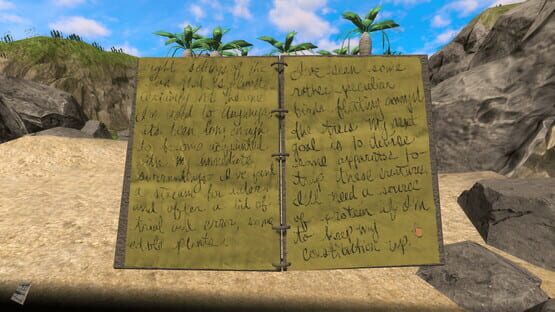 night setting of the
certainly not
used to anyways
its been long enough
to become acquainted
with my immediate
surroundings. I've found
a stream for water
and after a bit of
trial and error, some
edible plants.
I've seen some
rather peculiar
birds floating amongst
the trees. My next
goal is to devise
some apparatus to
trap these creatures.
I'll need a source
of protein if I'm
to keep my
constitution up.